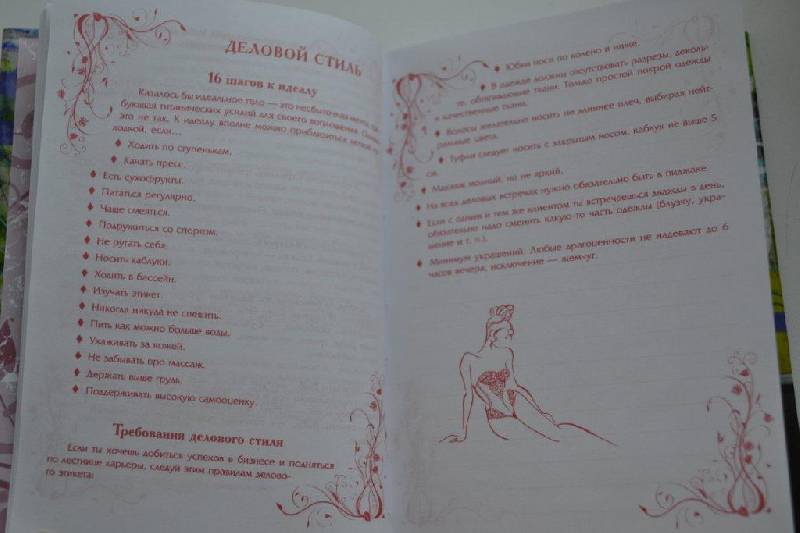 ДЕЛОВОЙ СТИЛЬ
16 шагов к идеалу
Казалось бы идеальное тело — это несбыточная мечта,
бующая титанических усилий для своего воплощения. Однако
это не так. К идеалу вполне можно приблизиться легкой
ходкой, если...
♦ Ходить по ступенькам.
♦ Качать пресс.
♦ Есть сухофрукты.
♦ Питаться регулярно.
♦ Чаще смеяться.
♦ Подружиться со спортом.
♦ Не ругать себя.
♦ Носить каблуки.
♦ Ходить в бассейн.
♦ Изучать этикет.
♦ Никогда никуда не спешить.
♦ Пить как можно больше воды.
♦ Ухаживать за кожей.
♦ Не забывать про массаж.
♦ Держать выше грудь.
♦ Поддерживать высокую самооценку.
Требования делового стиля
Если ты хочешь добиться успехов в бизнесе и подняться
по лестнице карьеры, следуй этим правилам делово-
го этикета:
♦ Юбки носи по колено и ниже.
♦ В одежде должны отсутствовать разрезы, деколь-
те, обтягивающие ткани. Только простой покрой одежды
и качественные ткани.
♦ Волосы желательно носить не длиннее плеч, выбирая нейт-
ральные цвета.
♦ Туфли следует носить с закрытым носом, каблук не выше 5
см.
♦ Макияж модный, но не яркий.
♦ На всех деловых встречах нужно обязательно быть в пиджаке.
♦ Если с одним и тем же клиентом ты встречаешься дважды в день,
обязательно надо сменить какую-то часть одежды (блузку, укра-
шение и т. п.).
♦ Минимум украшений. Любые драгоценности не надевают до 6
часов вечера, исключение — жемчуг.